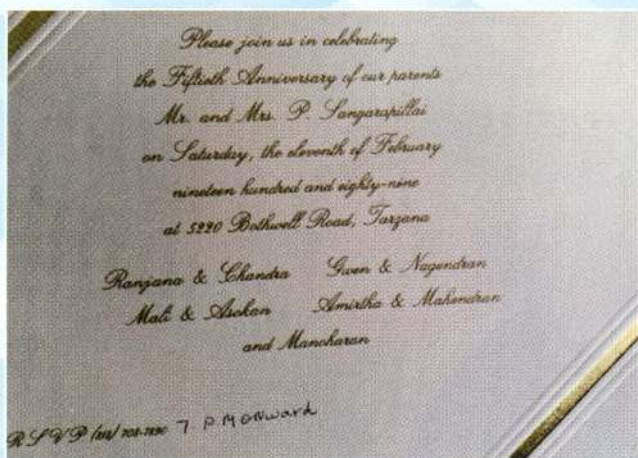 Please join us in celebrating
the Fiftieth Anniversary of our parents
Mr. and Mrs. P. Sangarapillai
on Saturday, the eleventh of February
nineteen hundred and eighty-nine
at 5220 Bothwell Road, Tarzana
Ranjana & Chandra Gwen & Nagendran
Mali & Asokan Amirtha & Mahendran
and Manoharan
R S V P 7 P M ONward